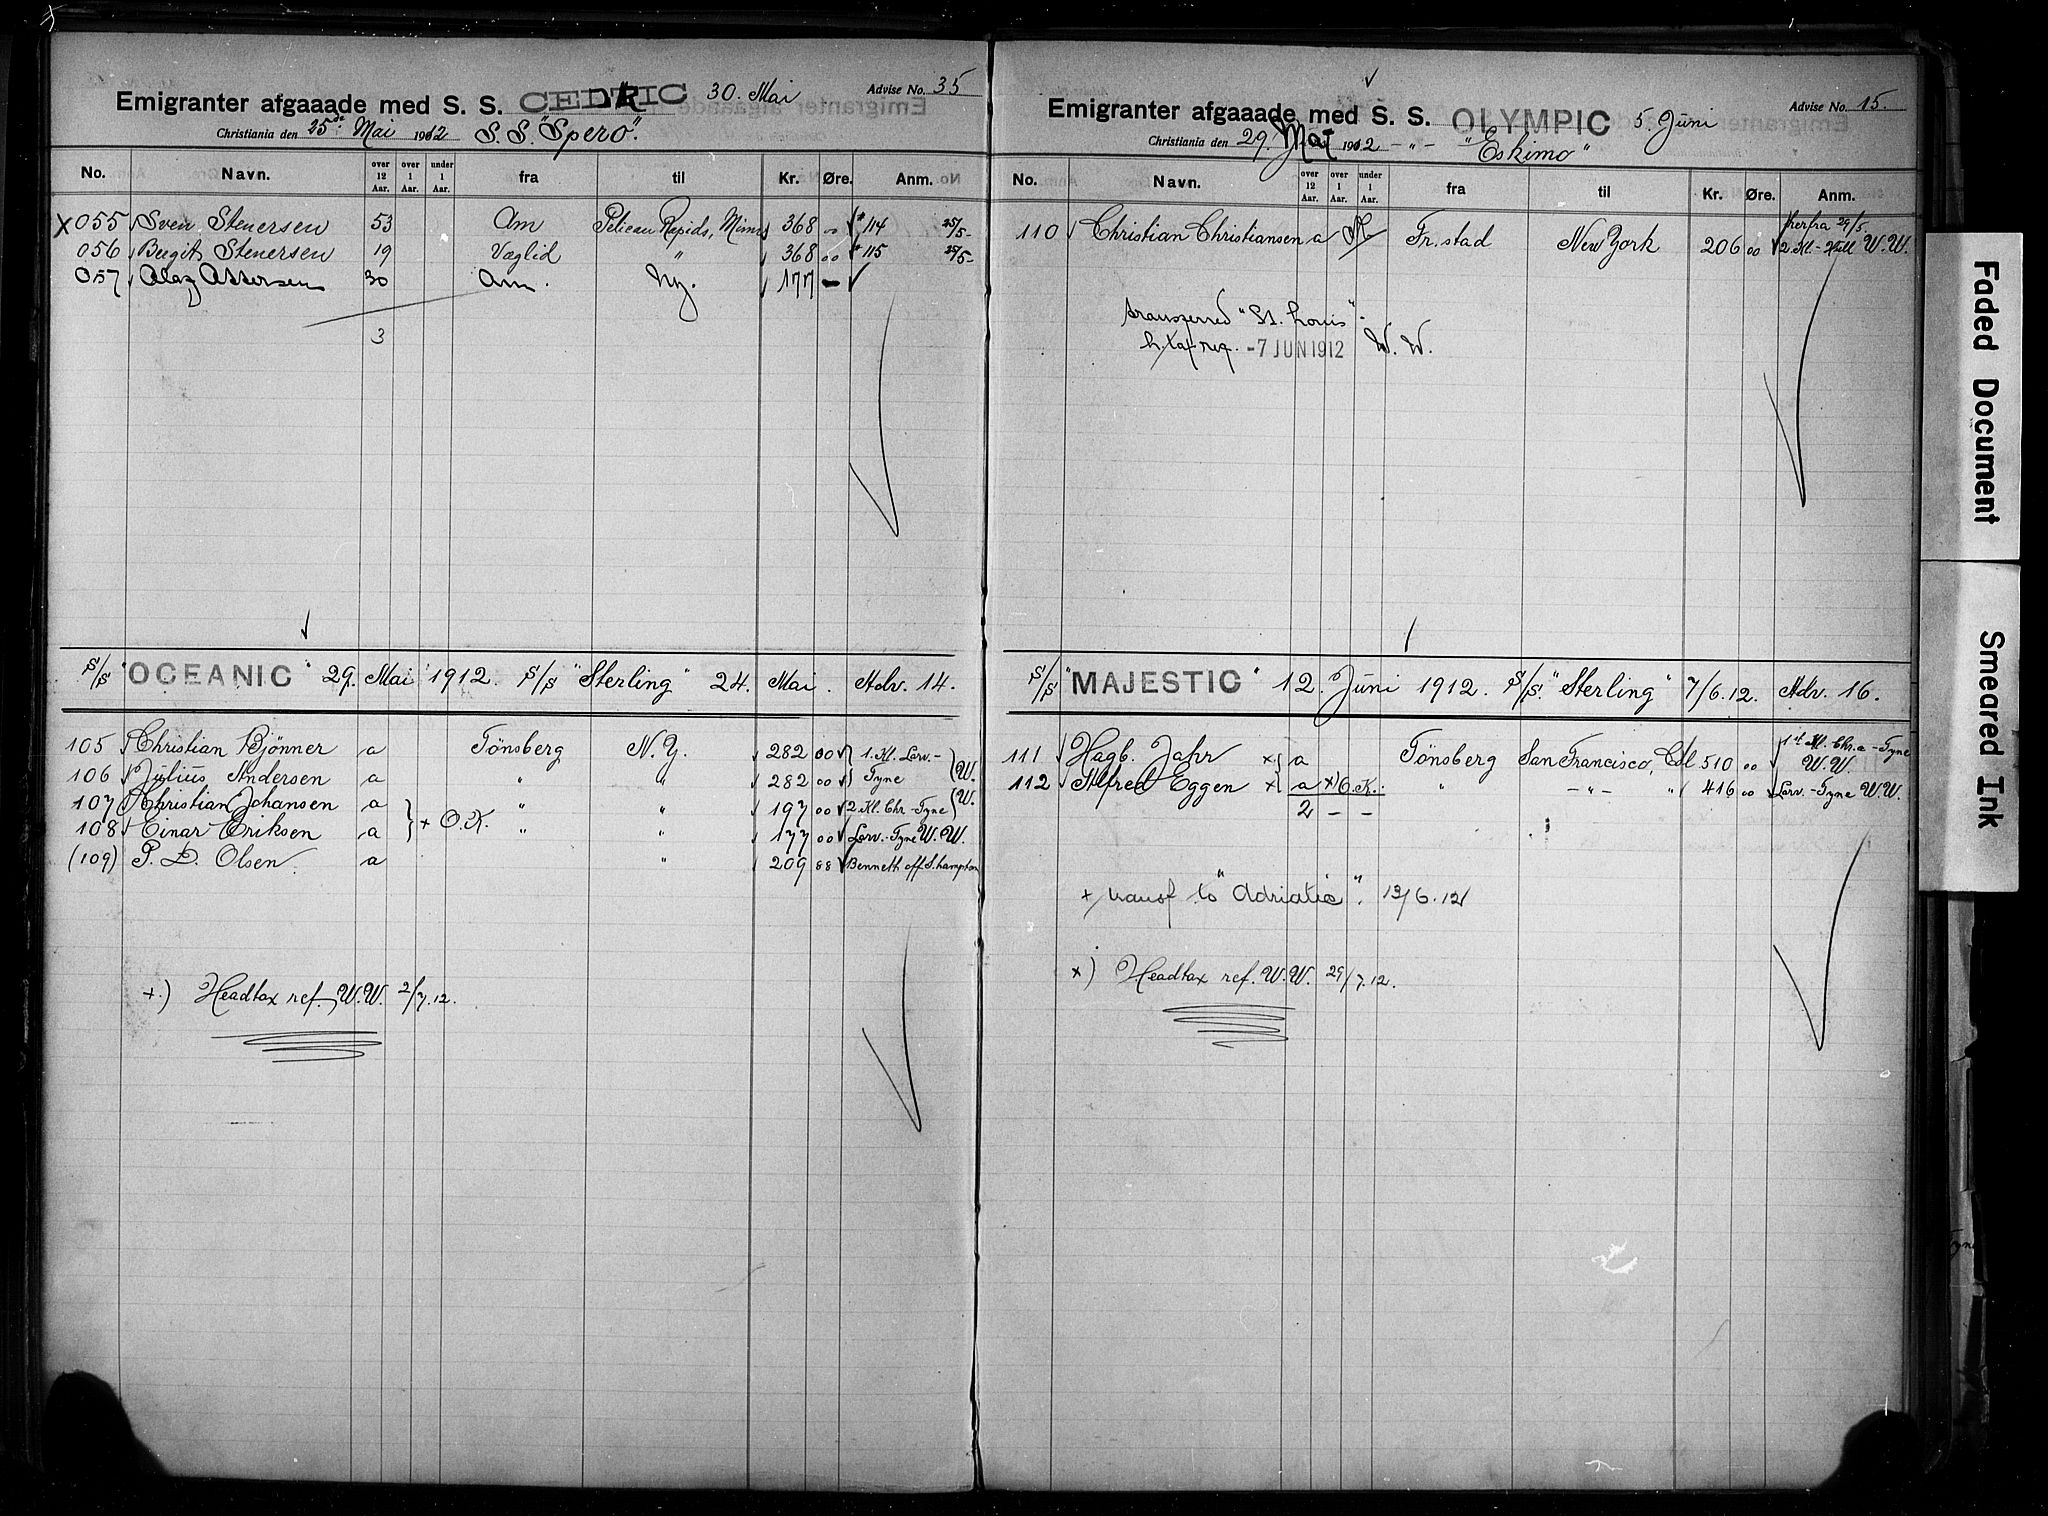 Emigranter afgaaade med S. S. CEDRIC 30. Mai Advise No. 35
Christiania den 25de Mai 1912 S.S. "Spero".
No. Navn. over 12 Aar. over 1 Aar. under 1 Aar. fra til Kr. Øre. Anm.
x 055 Sven Stenersen 53 Am Pelican Rapids, Minn 368 00 # 114 25/5-
056 Birgit Stenersen 19 Væglid " 368 00 # 115 25/5-
057 Assersen 30 Am. Ny. 177 -
3
S/S "OCEANIC" 29. Mai 1912. S/S "Sterling" 24. Mai. Adv. 14.
105 Christian Bjönner a Tönsberg N.Y. 282 00 1. Kl. Larv.-
106 Julius Andersen a " " 282 00 Tyne (W.
107 Christian Johansen a " " 197 00 2 Kl. Chr.-Tyne (W.
108 Einar Eriksen a + O.K. " " 177 00 Larv.-Tyne W.W.
(109) P. D. Olsen. a " 209 88 Benneth off. S.hampton
+.) Headtax ref. W.W. 2/7.12.
Emigranter afgaaade med S. S. OLYMPIC 5. Juni Advise No. 15.
Christiania den 29. Mai 1912 -"- "Eskimo"
No. Navn. over 12 Aar. over 1 Aar. under 1 Aar. fra til Kr. Øre. Anm.
110 Christian Christiansen a Fr.stad New York 206 00 herfra 29/5. 2 Kl.-Hull W.W.
transferred "St. Louis".
-7 JUN 1912 W.W.
S/S "MAJESTIC" 12. Juni 1912. S/S "Sterling" 7/6.12. Adv. 16.
111 Hagb. Jahr x a Tönsberg San Francisco, Cal 510 00 1st Kl. Chr.a-Tyne W.W.
112 Alfred Eggen x a x) O.K. " -"- " 416 00 Larv.-Tyne W.W.
2 - -
+ transf to "Adriatic". 13/6.12
x) Headtax ref. W.W. 29/7.12.
Faded Document
Smeared Ink